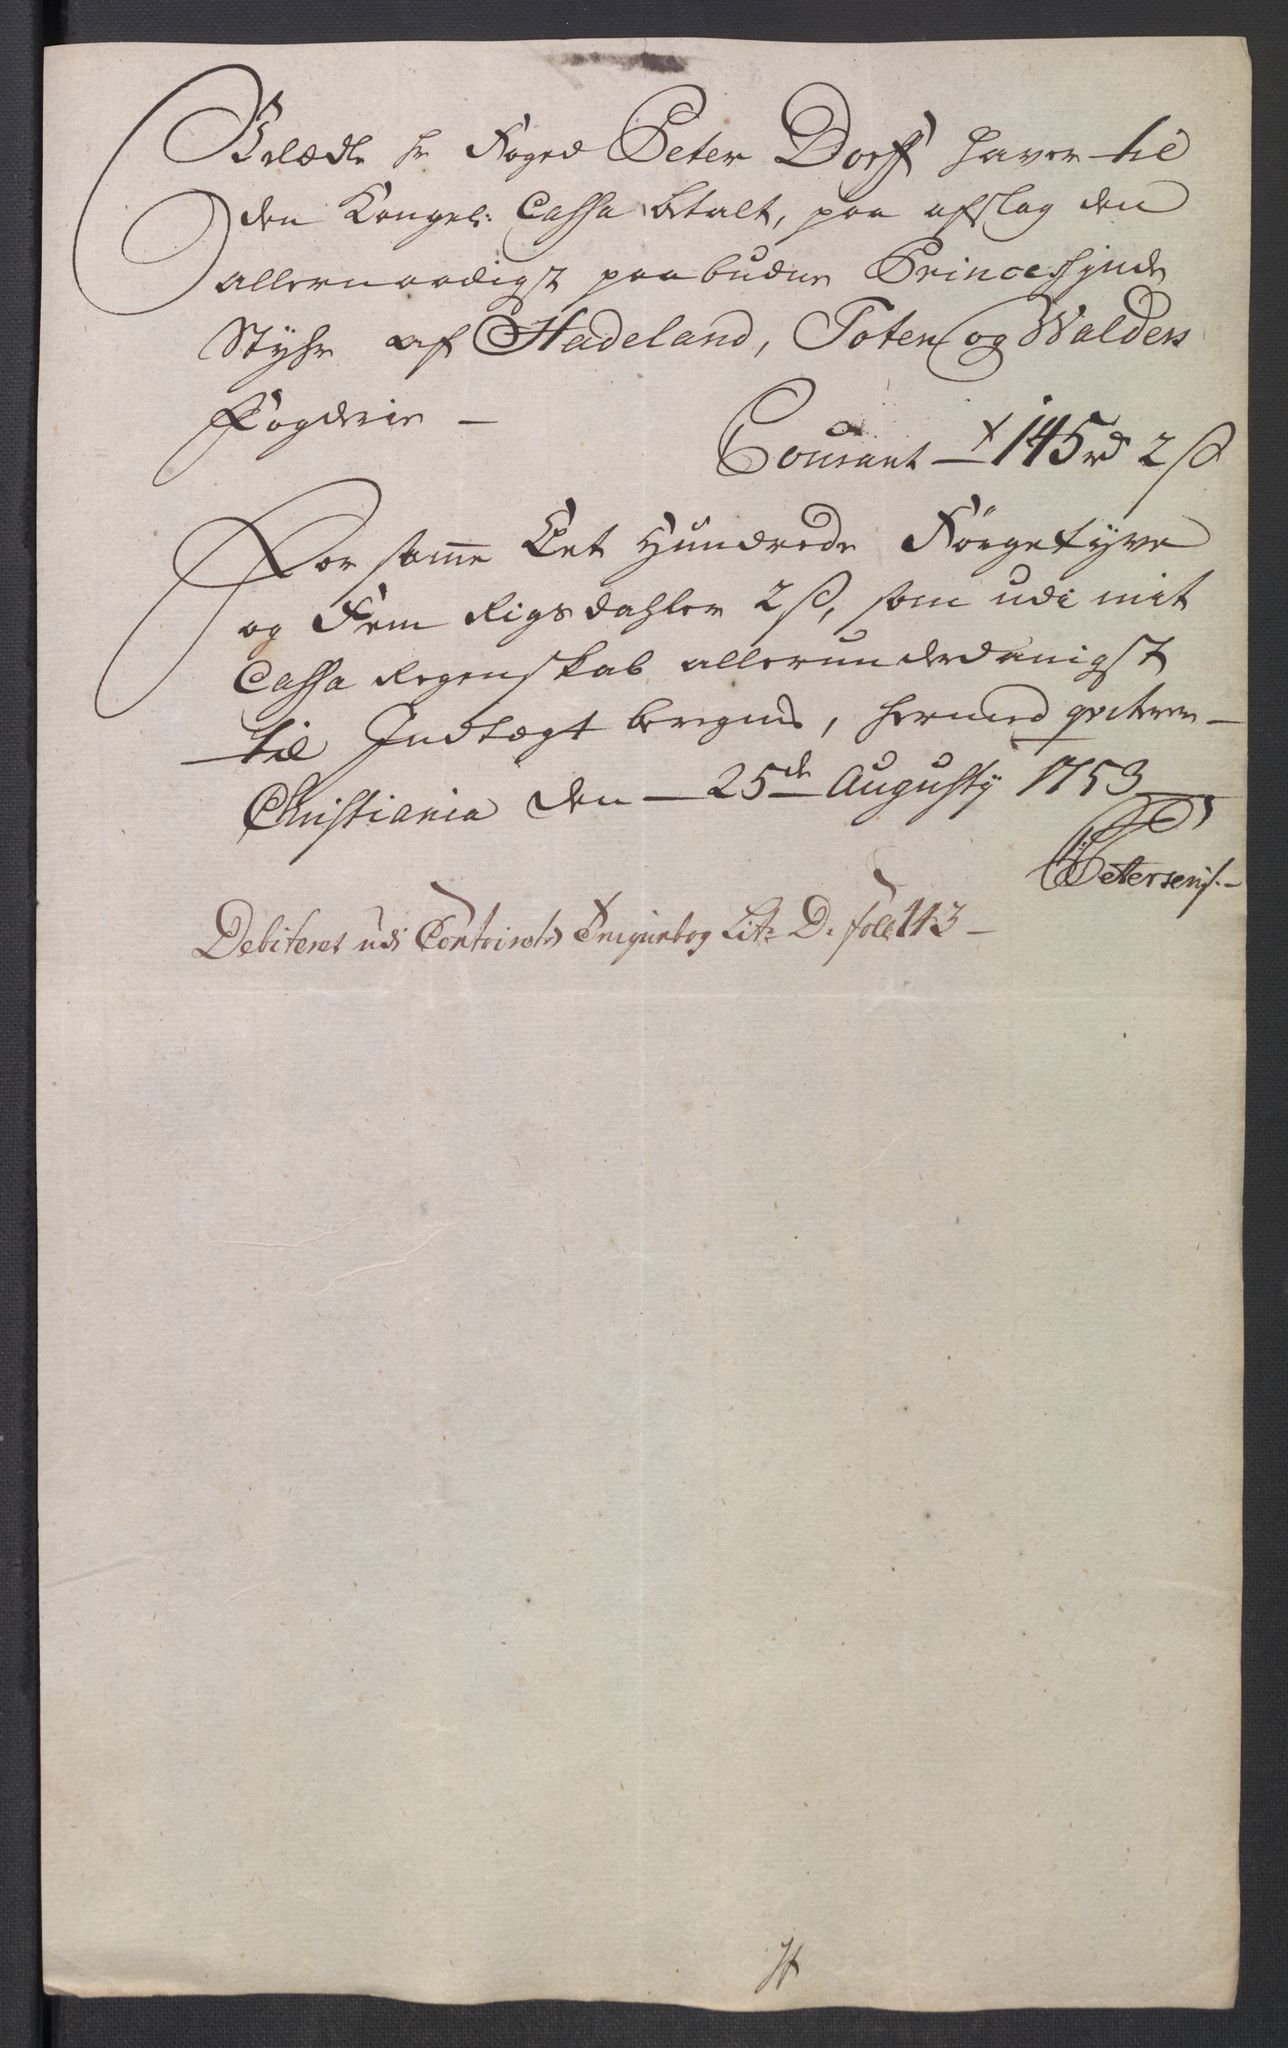 Velædle hr Foged Peter Dorff haver til
den Kongel: Cassa betalt, paa afslag den
allernaadigst paabudne Princessinde
Styhr af Hadeland, Toten og Walders
Fogderie —
Courant — 145 rd 2 ß
For samme Eet Hundrede Förgetyve
og Fem Rigsdahler 2 ß, som udi mit
Cassa Regenskab allerunderdanigst
til Indtægt beregnes, hermed qviteres —
Christiania den — 25de Augusty 1753
Pettersen
Debiteret udi Contoirets Lit: D. fol: 113 —